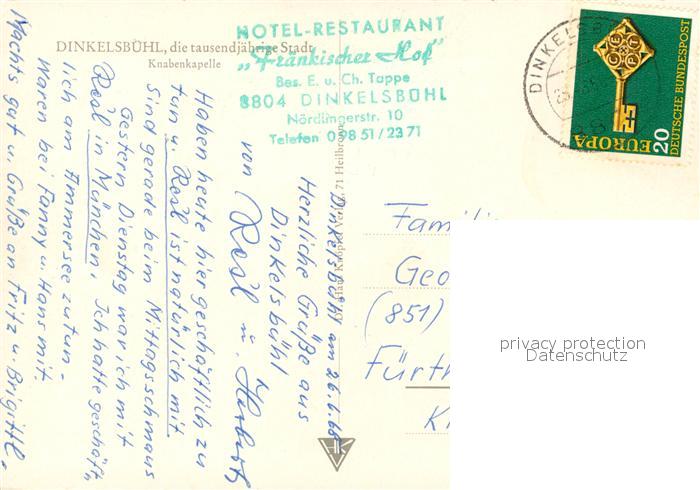 DINKELSBÜHL, die tausendjährige Stadt
Knabenkapelle
HOTEL-RESTAURANT
„Fränkischer Hof"
Bes. E. u. Ch. Tappe
8804 DINKELSBÜHL
Nördlingerstr. 10
Telefon 09851/2371
DINKELSB
EUROPA 20
DEUTSCHE BUNDESPOST
CEPT
Verlag, 71 Heilbronn
HK
Dinkelsbühl am 26.6.68
Herzliche Grüße aus
Dinkelsbühl
von Resl u. Herbert
Haben heute hier geschäftlich zu
tun u. Resl ist natürlich mit.
Sind gerade beim Mittagsschmaus
Gestern Dienstag war ich mit
Resl in München. Ich hatte geschäft-
lich am Ammersee zu tun -
Waren bei Fanny u. Hans mit.
Machts gut u. Grüße an Fritz u. Brigitte.
Famili
Geo
(851)
Fürth
K
privacy protection
Datenschutz